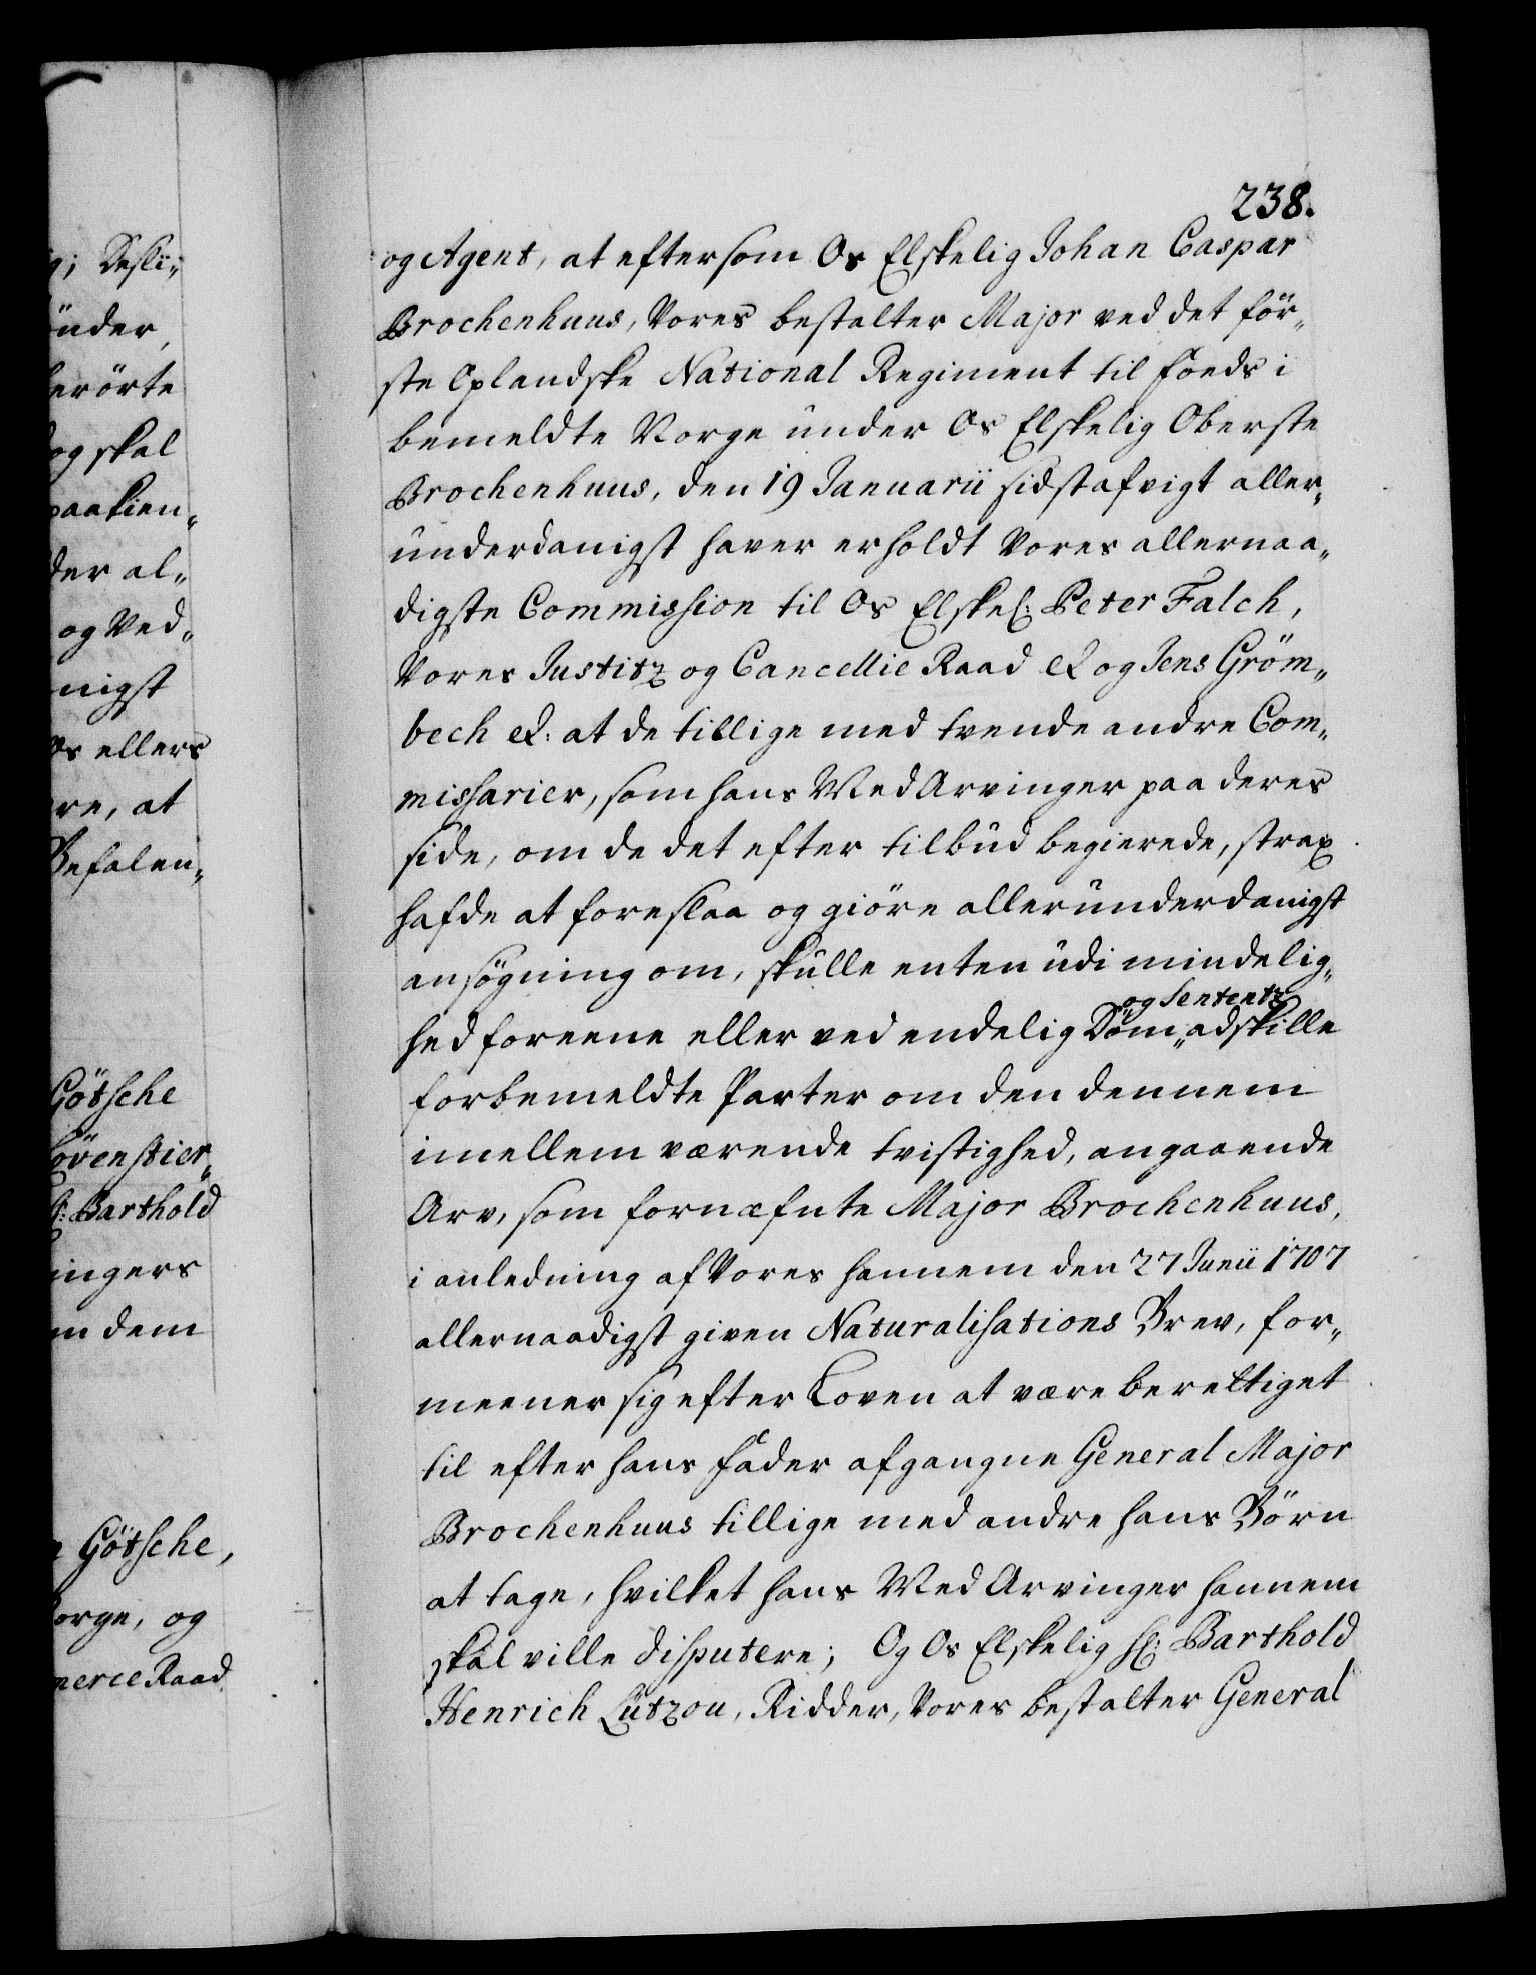 238.
og Agent, at eftersom Os Elskelig Johan Caspar
Brochenhuus, Vores bestalter Major ved det för„
ste Oplandske National Regiment til foeds i
bemeldte Norge under Os Elskelig Oberste
Brochenhuus, den 19 Januarii sidstafvigt aller„
underdanigst haver erholdt Vores allernaa„
digste Commission til Os Elskel: Peter Falch,
Vores Justitz og Cancellie Raad &c og Jens Gröm„
bech &c: at de tillige med tvende andre Com„
missarier, som hans Med Arvinger paa deres
side, om de det efter tilbud begierede, strax
hafde at foreslaa og giöre allerunderdanigst
ansögning om, skulle enten udi mindelig„
og Sententz
hed foreene eller ved endelig Dom„ adskille
forbemeldte Parter om den dennem
imellem værende tvistighed, angaaende
Arv, som fornæfnte Major Brochenhuus,
i anledning af Vores hannem den 27 Junii 1707
allernaadigst given Naturalisations Brev, for„
meener sig efter Loven at være berettiget
til efter hans fader afgangne General Major
Brochenhuus tillige med andre hans Börn
at tage, hvilket hans Med Arvinger hannem
skal ville disputere; Og Os Elskelig Hl: Barthold
Henrich Lützou, Ridder, Vores bestalter General
g; Desli„
önder,
berörte
og skal
paakien„
der al„
og Ved„
nigst
Os ellers
re, at
Befalen„
Götsche
Lövenstier„
l: Barthold
ingers
m dem
Götsche,
orge, og
merce Raad